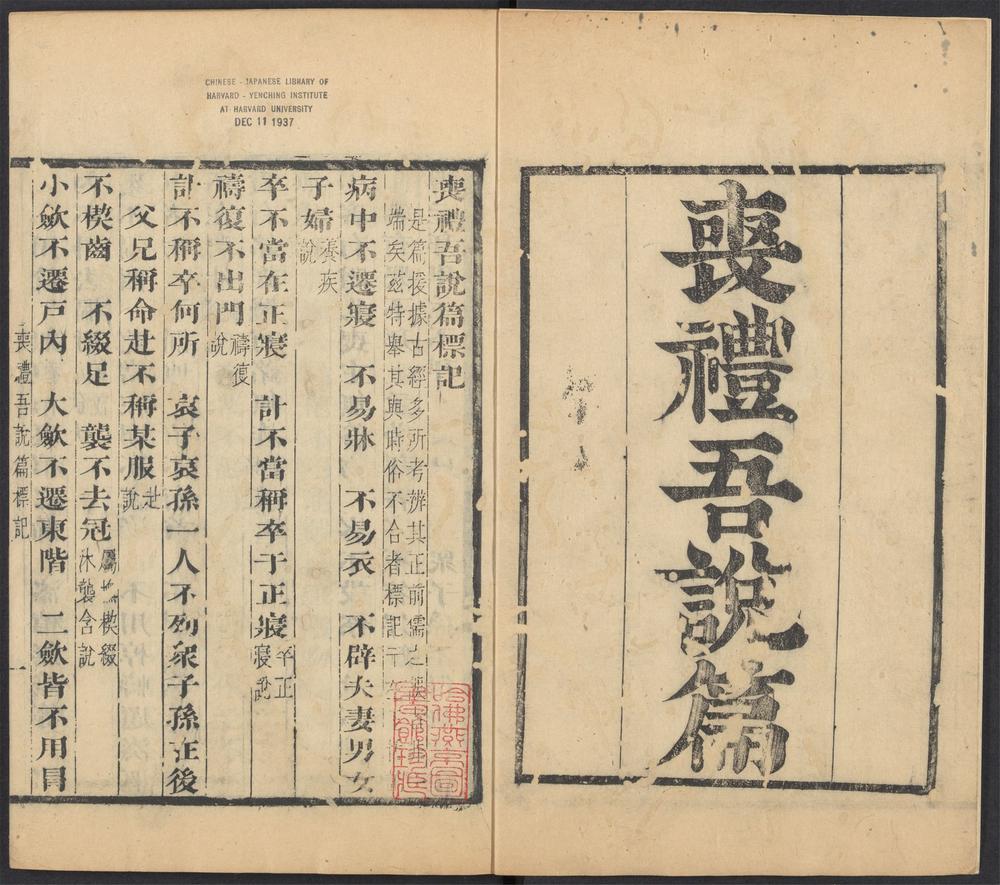 喪禮吾說篇
CHINESE - JAPANESE LIBRARY OF
HARVARD - YENCHING INSTITUTE
AT HARVARD UNIVERSITY
DEC 11 1937
喪禮吾說篇標記
是篇援據古經多所考辨其正前儒之
端矣茲特舉其與時俗不合者標記于
病中不遷寢 不易牀 不易衣 不辟夫妻男女
子婦養疾說
卒不當在正寢 訃不當稱卒于正寢卒正寢說
禱復不出門禱復說
訃不稱卒何所 哀子哀孫一人不列眾子孫在後
父兄稱命赴不稱某服赴說
不楔齒 不綴足 襲不去冠屬 楔綴沐襲含說
小斂不遷戶內 大斂不遷東階 二斂皆不用冒
喪禮吾說篇標記
一
哈佛燕京圖書館珍藏